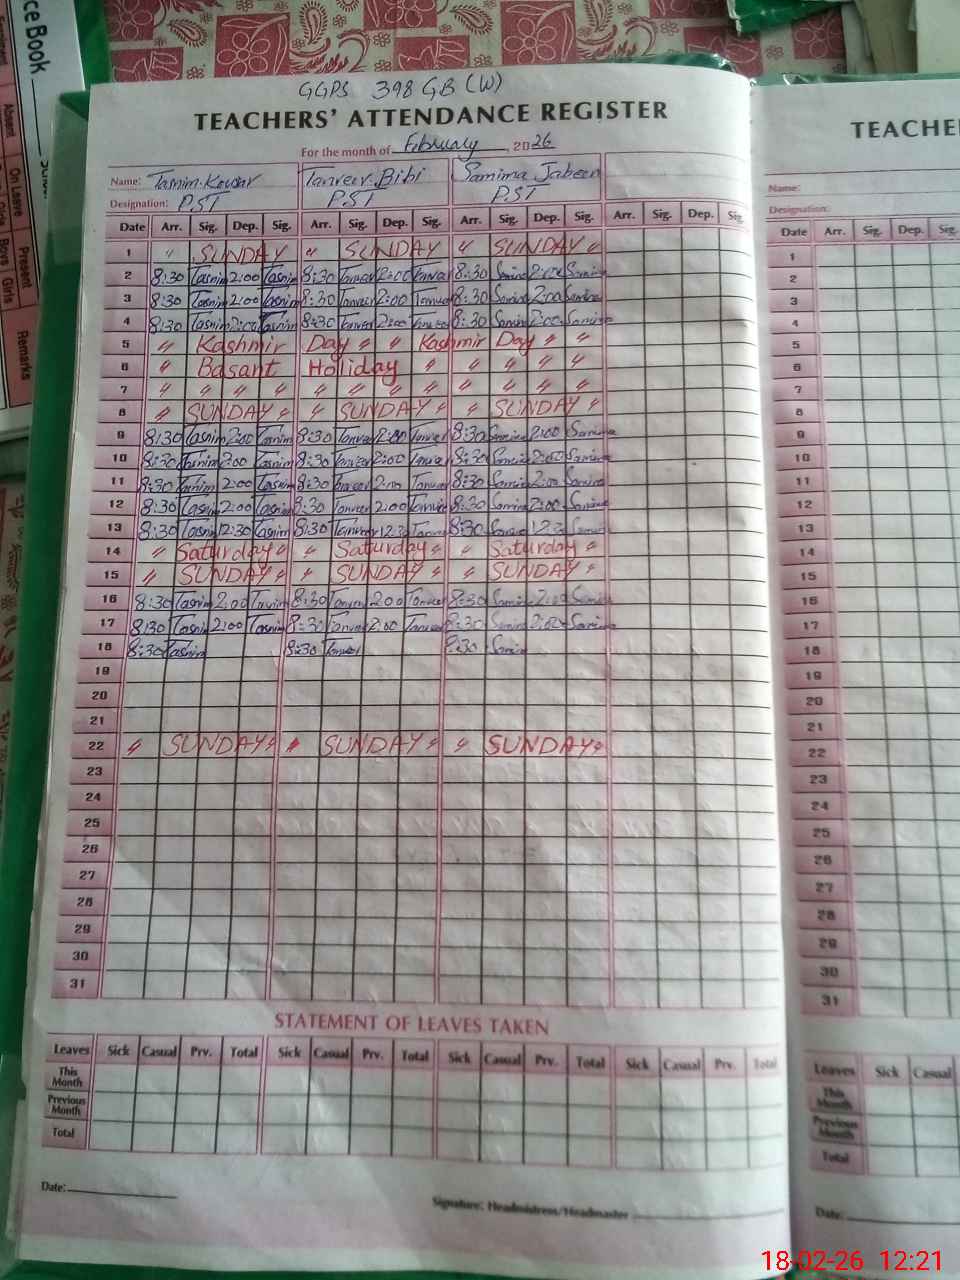 GGPS 398 GB (W)
TEACHERS' ATTENDANCE REGISTER
For the month of February, 2026
Name: Tasnim Kousar Tanveer Bibi Samima Jabeen
Designation: PST PST PST
Date Arr. Sig. Dep. Sig. Arr. Sig. Dep. Sig. Arr. Sig. Dep. Sig. Arr. Sig. Dep. Sig.
1 " SUNDAY " SUNDAY " SUNDAY "
2 8:30 Tasnim 2:00 Tasnim 8:30 Tanveer 2:00 Tanveer 8:30 Samima 2:00 Samima
3 8:30 Tasnim 2:00 Tasnim 8:30 Tanveer 2:00 Tanveer 8:30 Samima 2:00 Samima
4 8:30 Tasnim 2:00 Tasnim 8:30 Tanveer 2:00 Tanveer 8:30 Samima 2:00 Samima
5 " Kashmir Day " " Kashmir Day " "
6 " Basant Holiday " " " " "
7 " " " " " " " " " " " "
8 " SUNDAY " " SUNDAY " " SUNDAY "
9 8:30 Tasnim 2:00 Tasnim 8:30 Tanveer 2:00 Tanveer 8:30 Samima 2:00 Samima
10 8:30 Tasnim 2:00 Tasnim 8:30 Tanveer 2:00 Tanveer 8:30 Samima 2:00 Samima
11 8:30 Tasnim 2:00 Tasnim 8:30 Tanveer 2:00 Tanveer 8:30 Samima 2:00 Samima
12 8:30 Tasnim 2:00 Tasnim 8:30 Tanveer 2:00 Tanveer 8:30 Samima 2:00 Samima
13 8:30 Tasnim 12:30 Tasnim 8:30 Tanveer 12:3 Tanveer 8:30 Samima 12:3 Samima
14 " Saturday " " Saturday " " Saturday "
15 " SUNDAY " " SUNDAY " " SUNDAY "
16 8:30 Tasnim 2:00 Tasnim 8:30 Tanveer 2:00 Tanveer 8:30 Samima 2:00 Samima
17 8:30 Tasnim 2:00 Tasnim 8:30 Tanveer 2:00 Tanveer 8:30 Samima 2:00 Samima
18 8:30 Tasnim 8:30 Tanveer 8:30 Samima
19
20
21
22 " SUNDAY " " SUNDAY " " SUNDAY "
23
24
25
26
27
28
29
30
31
STATEMENT OF LEAVES TAKEN
Leaves Sick Casual Prv. Total Sick Casual Prv. Total Sick Casual Prv. Total Sick Casual Prv. Total
This Month
Previous Month
Total
Date:
Signature: Headmistress/Headmaster
TEACHE
Name:
Designation:
Date Arr. Sig. Dep. Sig.
1
2
3
4
5
6
7
8
9
10
11
12
13
14
15
16
17
18
19
20
21
22
23
24
25
26
27
28
29
30
31
Leaves Sick Casual
This Month
Previous Month
Total
Date:
ce Book
Absent
On Leave
Present
Boys
Girls
Remarks
18-02-26 12:21